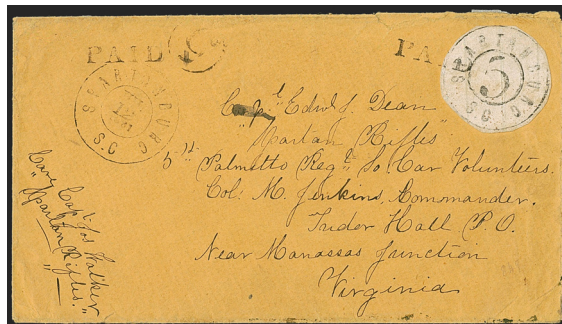 PAID
5
PA
SPARTANBURG
S.C
5
SPARTANBURG
S.C
Capt Edwd S. Dean
"Spartan Rifles"
5th Palmetto Regt. So. Car Volunteers.
Col. M. Jenkins, Commander.
Tudor Hall P.O.
Near Manassas Junction
Virginia
Care Capt. Jos Walker
"Spartan Rifles."